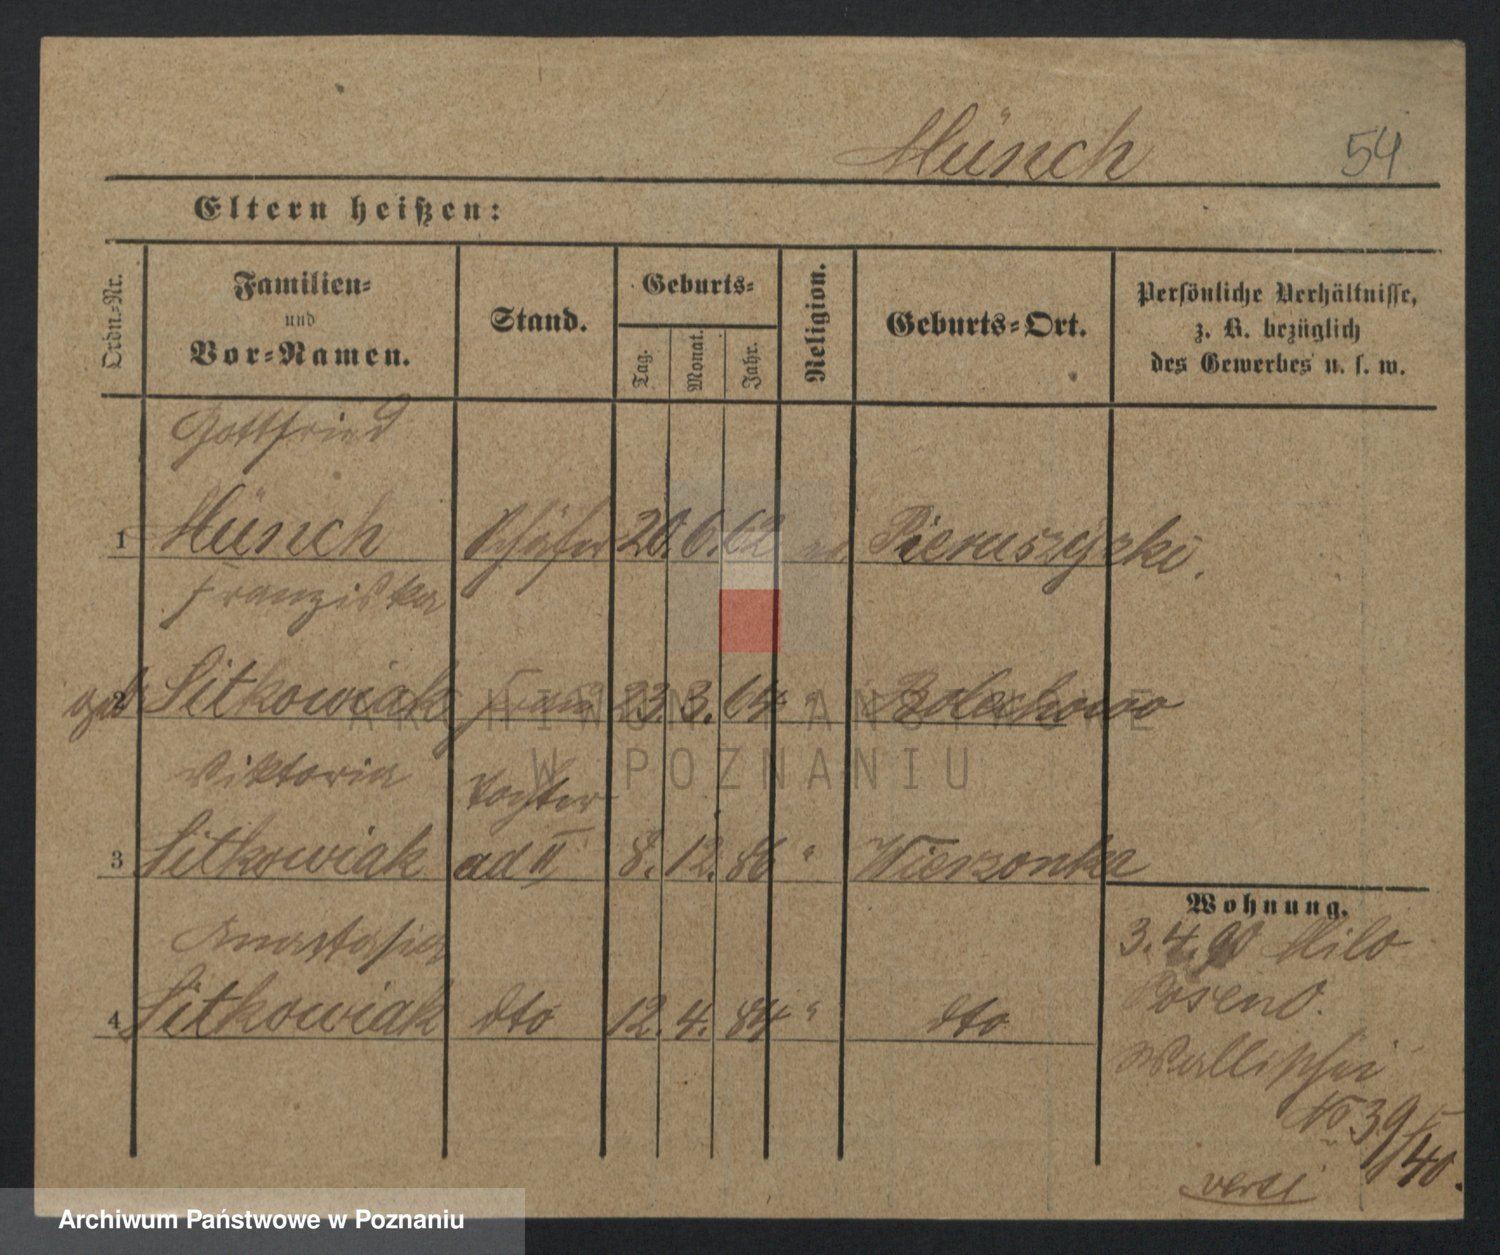 Münch 54
Eltern heißen:
Ordn.-Nr.
Familien-
und
Vor-Namen.
Stand.
Geburts-
Tag.
Monat.
Jahr.
Religion.
Geburts-Ort.
Persönliche Verhältnisse,
z. B. bezüglich
des Gewerbes u. s. w.
Gottfried
1 Münch Schäfer 20. 6. 62 Pieruszyzki.
Franziska
2 geb Sitkowiak Frau 23. 3. 64 " Bolechowo
Viktoria Tochter
3 Sitkowiak ad II 8. 12. 86 " Wierzonka
Anastasia
4 Sitkowiak dto 12. 4. 84 " dto
Wohnung.
3. 4. 90 Milo
Posen O.
Wallischei
No 39/40.
verte
ARCHIWUM PAŃSTWOWE
W POZNANIU
Archiwum Państwowe w Poznaniu